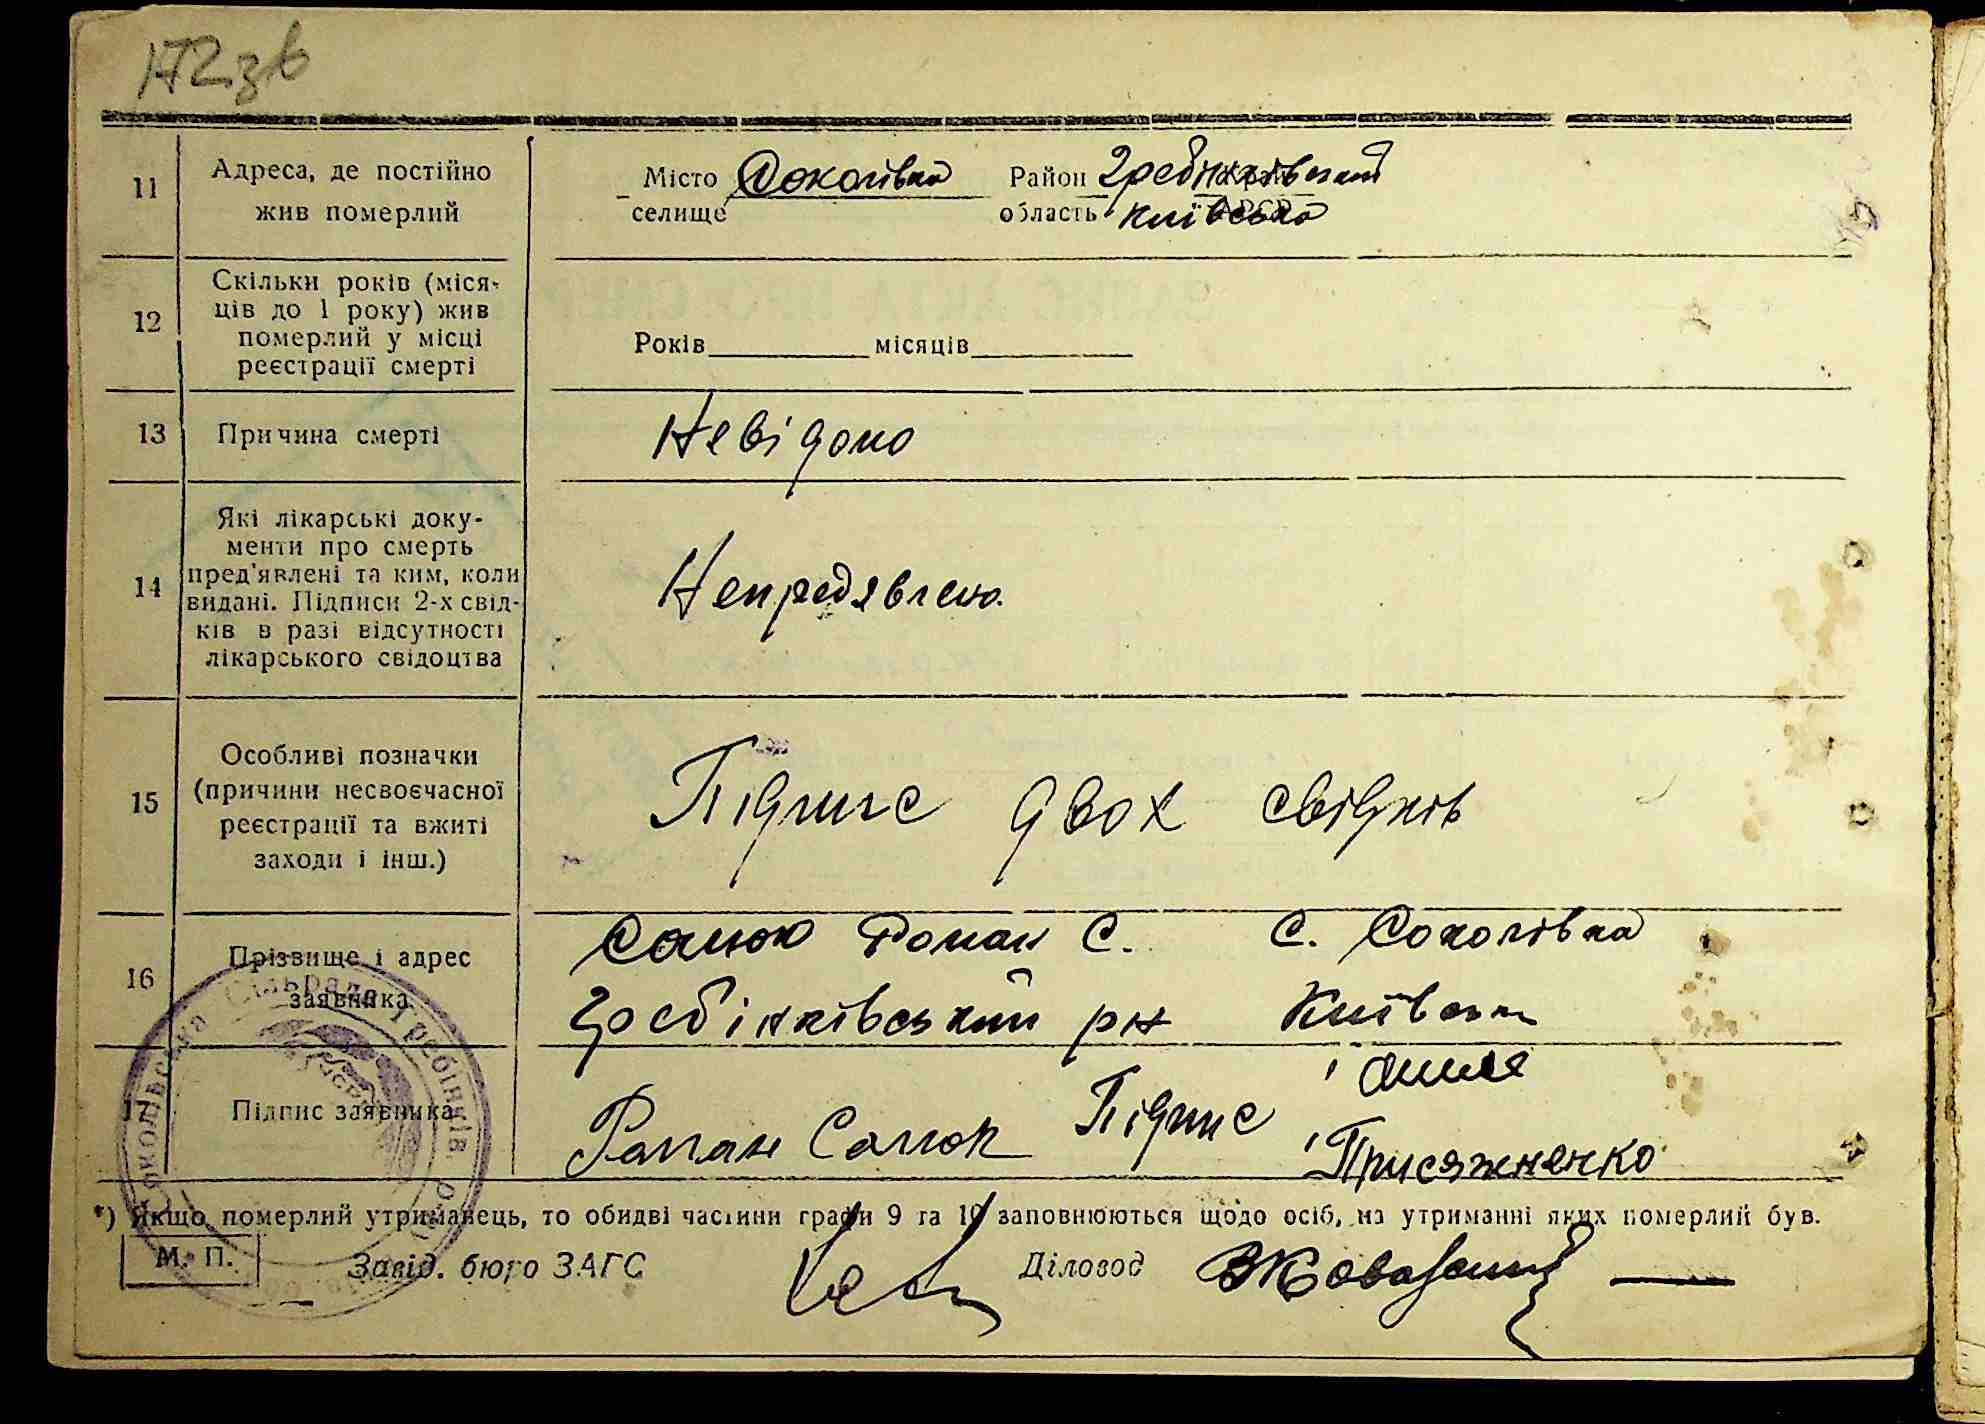 172зв
11 Адреса, де постійно жив померлий
Місто селище Соколівка Район Гребінківський область Київська
12 Скільки років (місяців до 1 року) жив померлий у місці реєстрації смерті
Років місяців
13 Причина смерті
Невідомо
14 Які лікарські документи про смерть пред'явлені та ким, коли видані. Підписи 2-х свідків в разі відсутності лікарського свідоцтва
Непредявлено.
15 Особливі позначки (причини несвоєчасної реєстрації та вжиті заходи і інш.)
Підписе двох свідків
16 Прізвище і адрес заявника
Роман С. с. Соколівка
Гребінківський рн Київськ
17 Підпис заявника
Підпис
Присяжненко
*) Якщо померлий утриманець, то обидві частини графи 9 та 10 заповнюються щодо осіб, на утриманні яких померлий був.
М. П. Завід. бюро ЗАГС Діловод